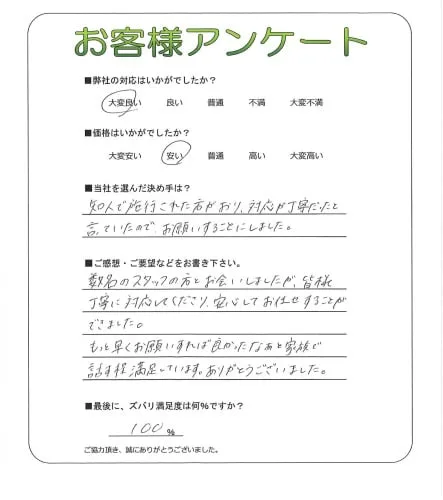 お客様アンケート
■弊社の対応はいかがでしたか？
大変良い 良い 普通 不満 大変不満
■価格はいかがでしたか？
大変安い 安い 普通 高い 大変高い
■当社を選んだ決め手は？
知人で施行された方がおり、対応が丁寧だったと
言っていたので、お願いすることにしました。
■ご感想・ご要望などをお書き下さい。
数名のスタッフの方とお会いしましたが、皆様
丁寧に対応してくださり、安心してお任せすることが
できました。
もっと早くお願いすれば良かったなぁと家族で
話す程満足しています。ありがとうございました。
■最後に、ズバリ満足度は何%ですか？
100%
ご協力頂き、誠にありがとうございました。